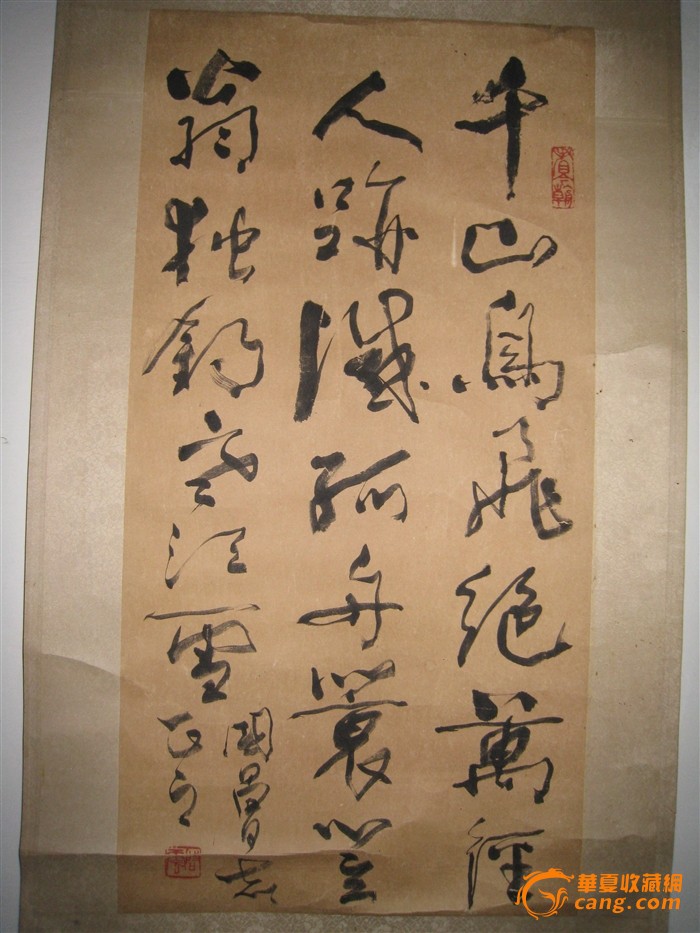 千山鳥飛絕萬徑
人跡滅孤舟蓑笠
翁獨釣寒江雪
國
正之
華夏收藏網
cang.com